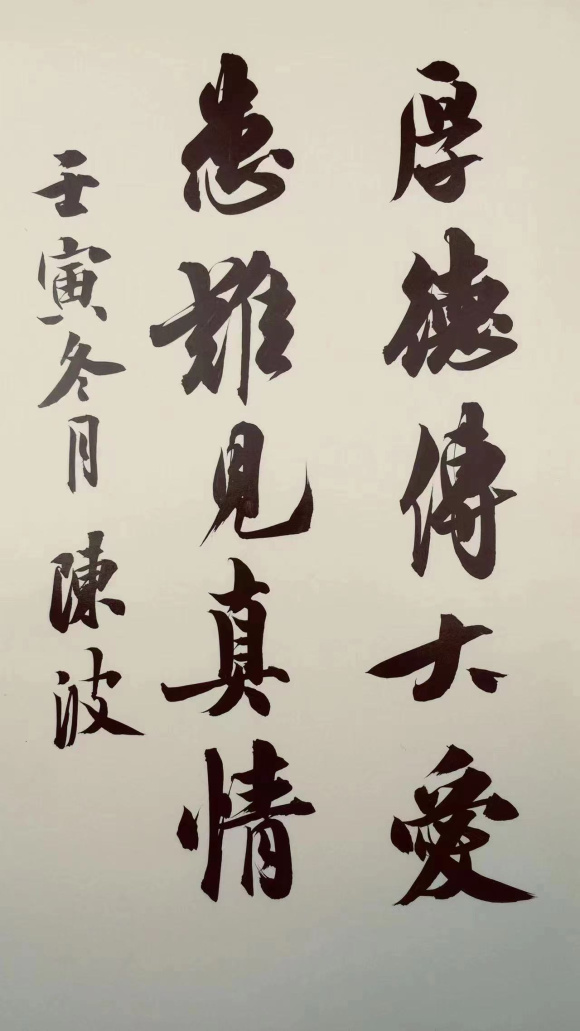 厚德傳大愛
患難見真情
壬寅冬月 陳波